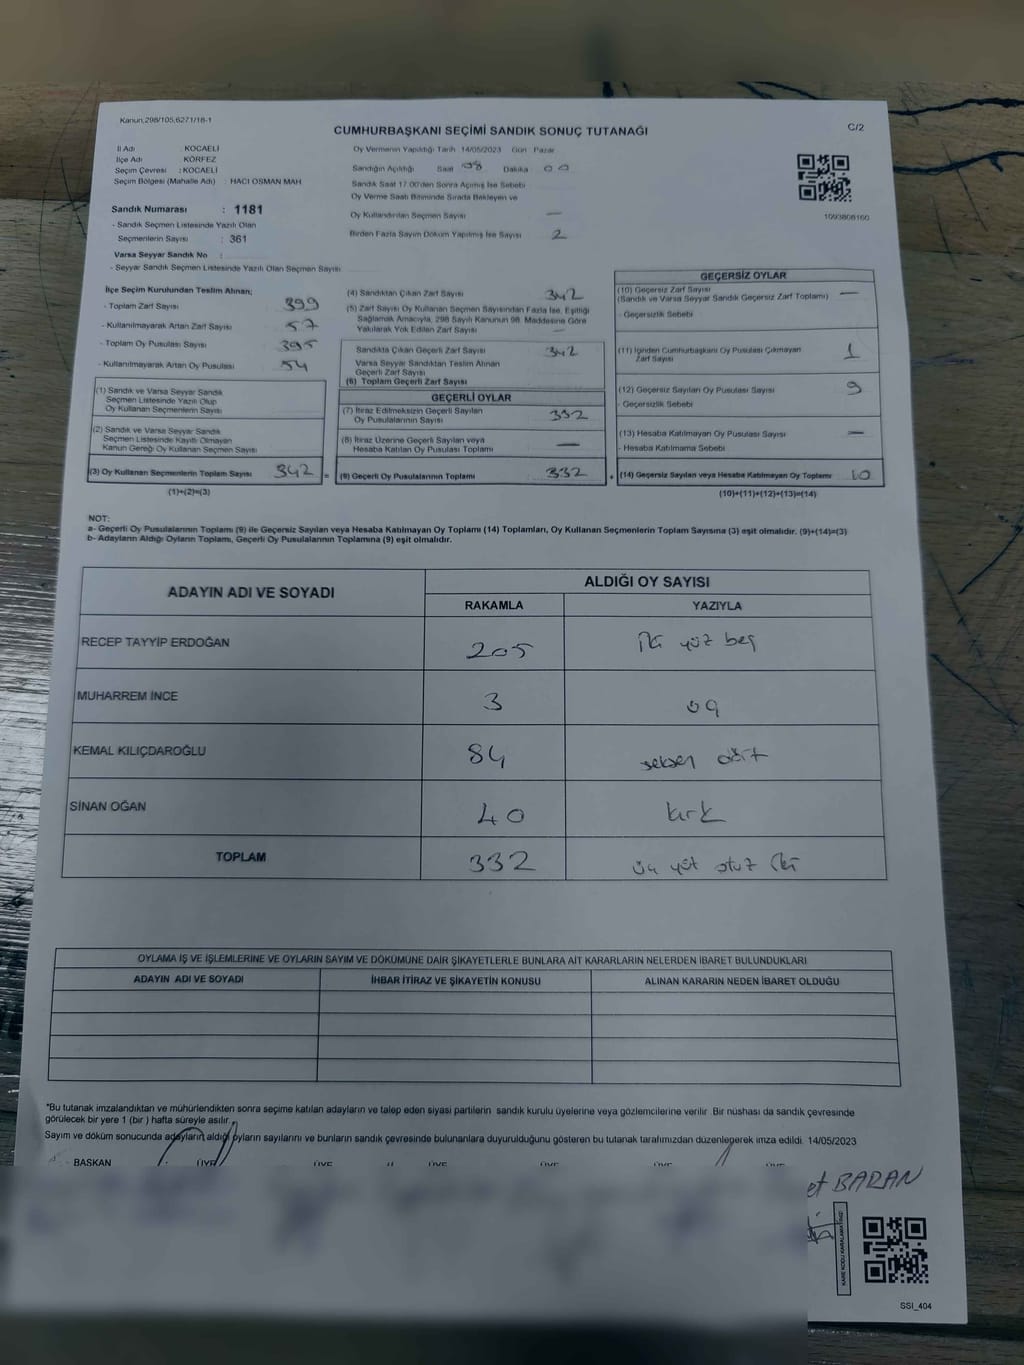 Kanun,298/105,6271/18-1
CUMHURBAŞKANI SEÇİMİ SANDIK SONUÇ TUTANAĞI
C/2
İl Adı : KOCAELİ
İlçe Adı : KÖRFEZ
Seçim Çevresi : KOCAELİ
Seçim Bölgesi (Mahalle Adı) : HACI OSMAN MAH
Sandık Numarası : 1181
- Sandık Seçmen Listesinde Yazılı Olan
Seçmenlerin Sayısı : 361
Varsa Seyyar Sandık No :
- Seyyar Sandık Seçmen Listesinde Yazılı Olan Seçmen Sayısı
Oy Vermenin Yapıldığı Tarih : 14/05/2023 Gün : Pazar
Sandığın Açıldığı Saat 08 Dakika 00
Sandık Saat 17.00'den Sonra Açılmış İse Sebebi
Oy Verme Saati Bitiminde Sırada Bekleyen ve
Oy Kullandırılan Seçmen Sayısı —
Birden Fazla Sayım Döküm Yapılmış İse Sayısı 2
1093808160
İlçe Seçim Kurulundan Teslim Alınan;
- Toplam Zarf Sayısı 399
- Kullanılmayarak Artan Zarf Sayısı 57
- Toplam Oy Pusulası Sayısı 395
- Kullanılmayarak Artan Oy Pusulası 54
(1) Sandık ve Varsa Seyyar Sandık
Seçmen Listesinde Yazılı Olup
Oy Kullanan Seçmenlerin Sayısı
(2) Sandık ve Varsa Seyyar Sandık
Seçmen Listesinde Kayıtlı Olmayan
Kanun Gereği Oy Kullanan Seçmen Sayısı
(3) Oy Kullanan Seçmenlerin Toplam Sayısı 342
(1)+(2)=(3)
(4) Sandıktan Çıkan Zarf Sayısı 342
(5) Zarf Sayısı Oy Kullanan Seçmen Sayısından Fazla İse, Eşitliği
Sağlamak Amacıyla, 298 Sayılı Kanunun 98. Maddesine Göre
Yakılarak Yok Edilen Zarf Sayısı —
Sandıkta Çıkan Geçerli Zarf Sayısı 342
Varsa Seyyar Sandıktan Teslim Alınan
Geçerli Zarf Sayısı
(6) Toplam Geçerli Zarf Sayısı
GEÇERLİ OYLAR
(7) İtiraz Edilmeksizin Geçerli Sayılan
Oy Pusulalarının Sayısı 332
(8) İtiraz Üzerine Geçerli Sayılan veya
Hesaba Katılan Oy Pusulası Toplamı —
= (9) Geçerli Oy Pusulalarının Toplamı 332
GEÇERSİZ OYLAR
(10) Geçersiz Zarf Sayısı —
(Sandık ve Varsa Seyyar Sandık Geçersiz Zarf Toplamı)
- Geçersizlik Sebebi
(11) İçinden Cumhurbaşkanı Oy Pusulası Çıkmayan
Zarf Sayısı 1
(12) Geçersiz Sayılan Oy Pusulası Sayısı 9
- Geçersizlik Sebebi
(13) Hesaba Katılmayan Oy Pusulası Sayısı —
- Hesaba Katılmama Sebebi
+ (14) Geçersiz Sayılan veya Hesaba Katılmayan Oy Toplamı 10
(10)+(11)+(12)+(13)=(14)
NOT:
a- Geçerli Oy Pusulalarının Toplamı (9) ile Geçersiz Sayılan veya Hesaba Katılmayan Oy Toplamı (14) Toplamları, Oy Kullanan Seçmenlerin Toplam Sayısına (3) eşit olmalıdır. (9)+(14)=(3)
b- Adayların Aldığı Oyların Toplamı, Geçerli Oy Pusulalarının Toplamına (9) eşit olmalıdır.
ADAYIN ADI VE SOYADI ALDIĞI OY SAYISI
RAKAMLA YAZIYLA
RECEP TAYYİP ERDOĞAN 205 iki yüz beş
MUHARREM İNCE 3 üç
KEMAL KILIÇDAROĞLU 84 seksen dört
SİNAN OĞAN 40 kırk
TOPLAM 332 üç yüz otuz iki
OYLAMA İŞ VE İŞLEMLERİNE VE OYLARIN SAYIM VE DÖKÜMÜNE DAİR ŞİKAYETLERLE BUNLARA AİT KARARLARIN NELERDEN İBARET BULUNDUKLARI
ADAYIN ADI VE SOYADI İHBAR İTİRAZ VE ŞİKAYETİN KONUSU ALINAN KARARIN NEDEN İBARET OLDUĞU
*Bu tutanak imzalandıktan ve mühürlendikten sonra seçime katılan adayların ve talep eden siyasi partilerin sandık kurulu üyelerine veya gözlemcilerine verilir. Bir nüshası da sandık çevresinde
görülecek bir yere 1 (bir ) hafta süreyle asılır.
Sayım ve döküm sonucunda adayların aldığı oyların sayılarını ve bunların sandık çevresinde bulunanlara duyurulduğunu gösteren bu tutanak tarafımızdan düzenlenerek imza edildi. 14/05/2023
BAŞKAN ÜYE ÜYE ÜYE ÜYE ÜYE ÜYE
et BARAN
SSI_404